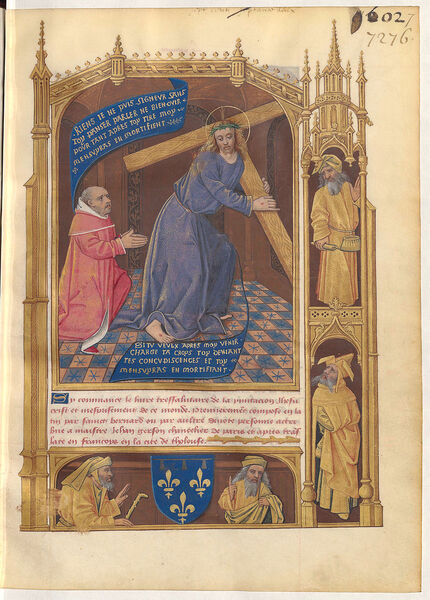 6027
7276.
RIENS IE NE PUIS SIGNEUR SANS
TOY PENSER PARLER NE BIEN OUIR
POUR TANT APRES TOY TIRE MOY
MEN SUPRAS EN MORTIFIENT
SI TU VEULX APRES MOY VENIR
CHARGE TA CROYS TOY DENIANT
TES CONCUDISCENCES ET TOY
MENSUPRAS EN MORTIFIANT.
Cy commance le livre tressalutaire de la ymitacion Jhesu
crist et mesprisement de ce monde. Premierement compose en la
tin par sainct bernard ou par aultre devote personne attri
bue a maistre Jehan gerson chancelier de paris et apres trans
late en francoys en la cite de tholouse.